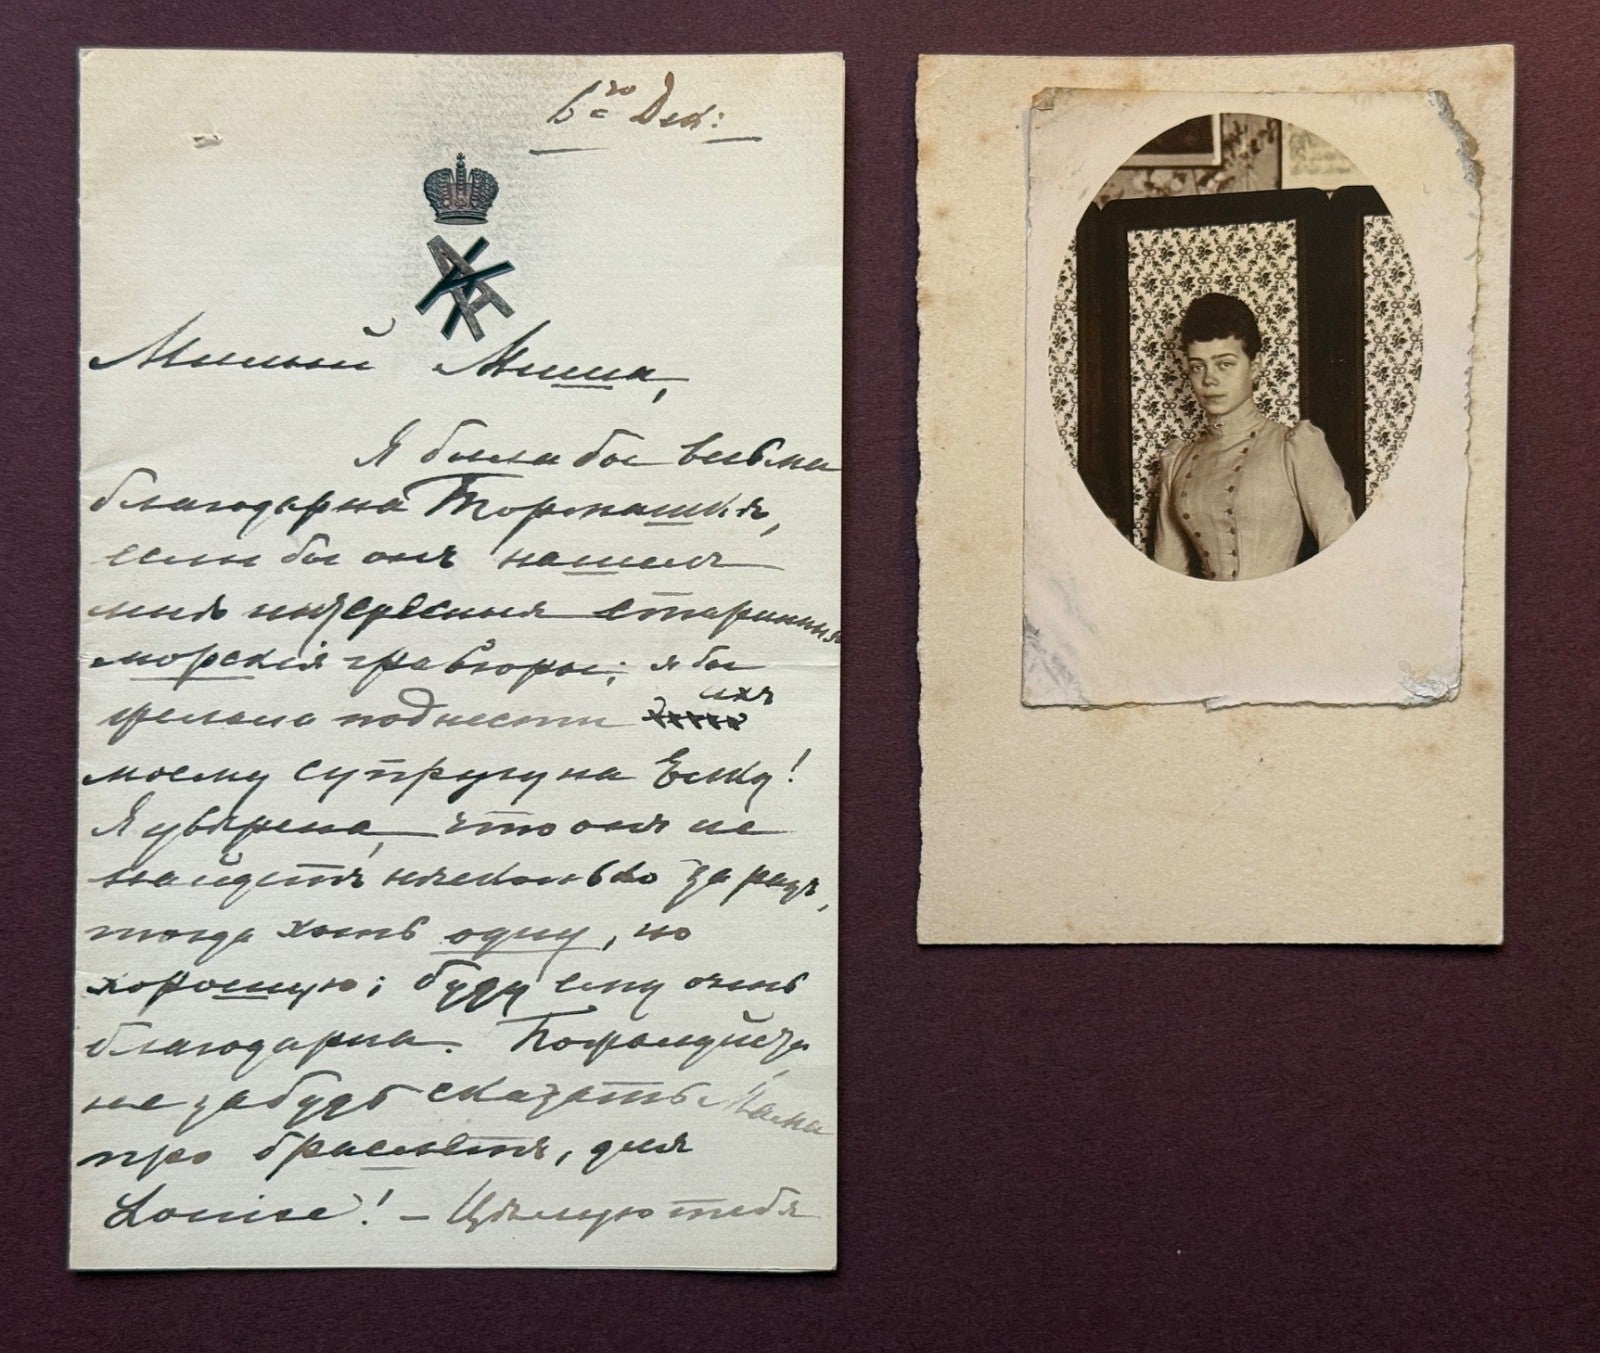 6го Дек:
Милый Миша,
Я была бы весьма
благодарна Тормашкѣ,
если бы онъ нашелъ
мнѣ интересныя старинныя
морскія гравюры; я бы
желала поднести ихъ
моему супругу на Елку!
Я увѣрена, что онъ не
найдетъ нѣсколько за разъ,
тогда хоть одну, но
хорошую; буду ему очень
благодарна. Пожалуйста
не забудь сказать Мама
про браслетъ, для
Louise! — Цѣлую тебя